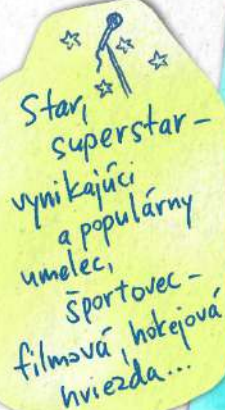 Star,
superstar –
vynikajúci
a populárny
umelec,
športovec –
filmová, hokejová
hviezda...